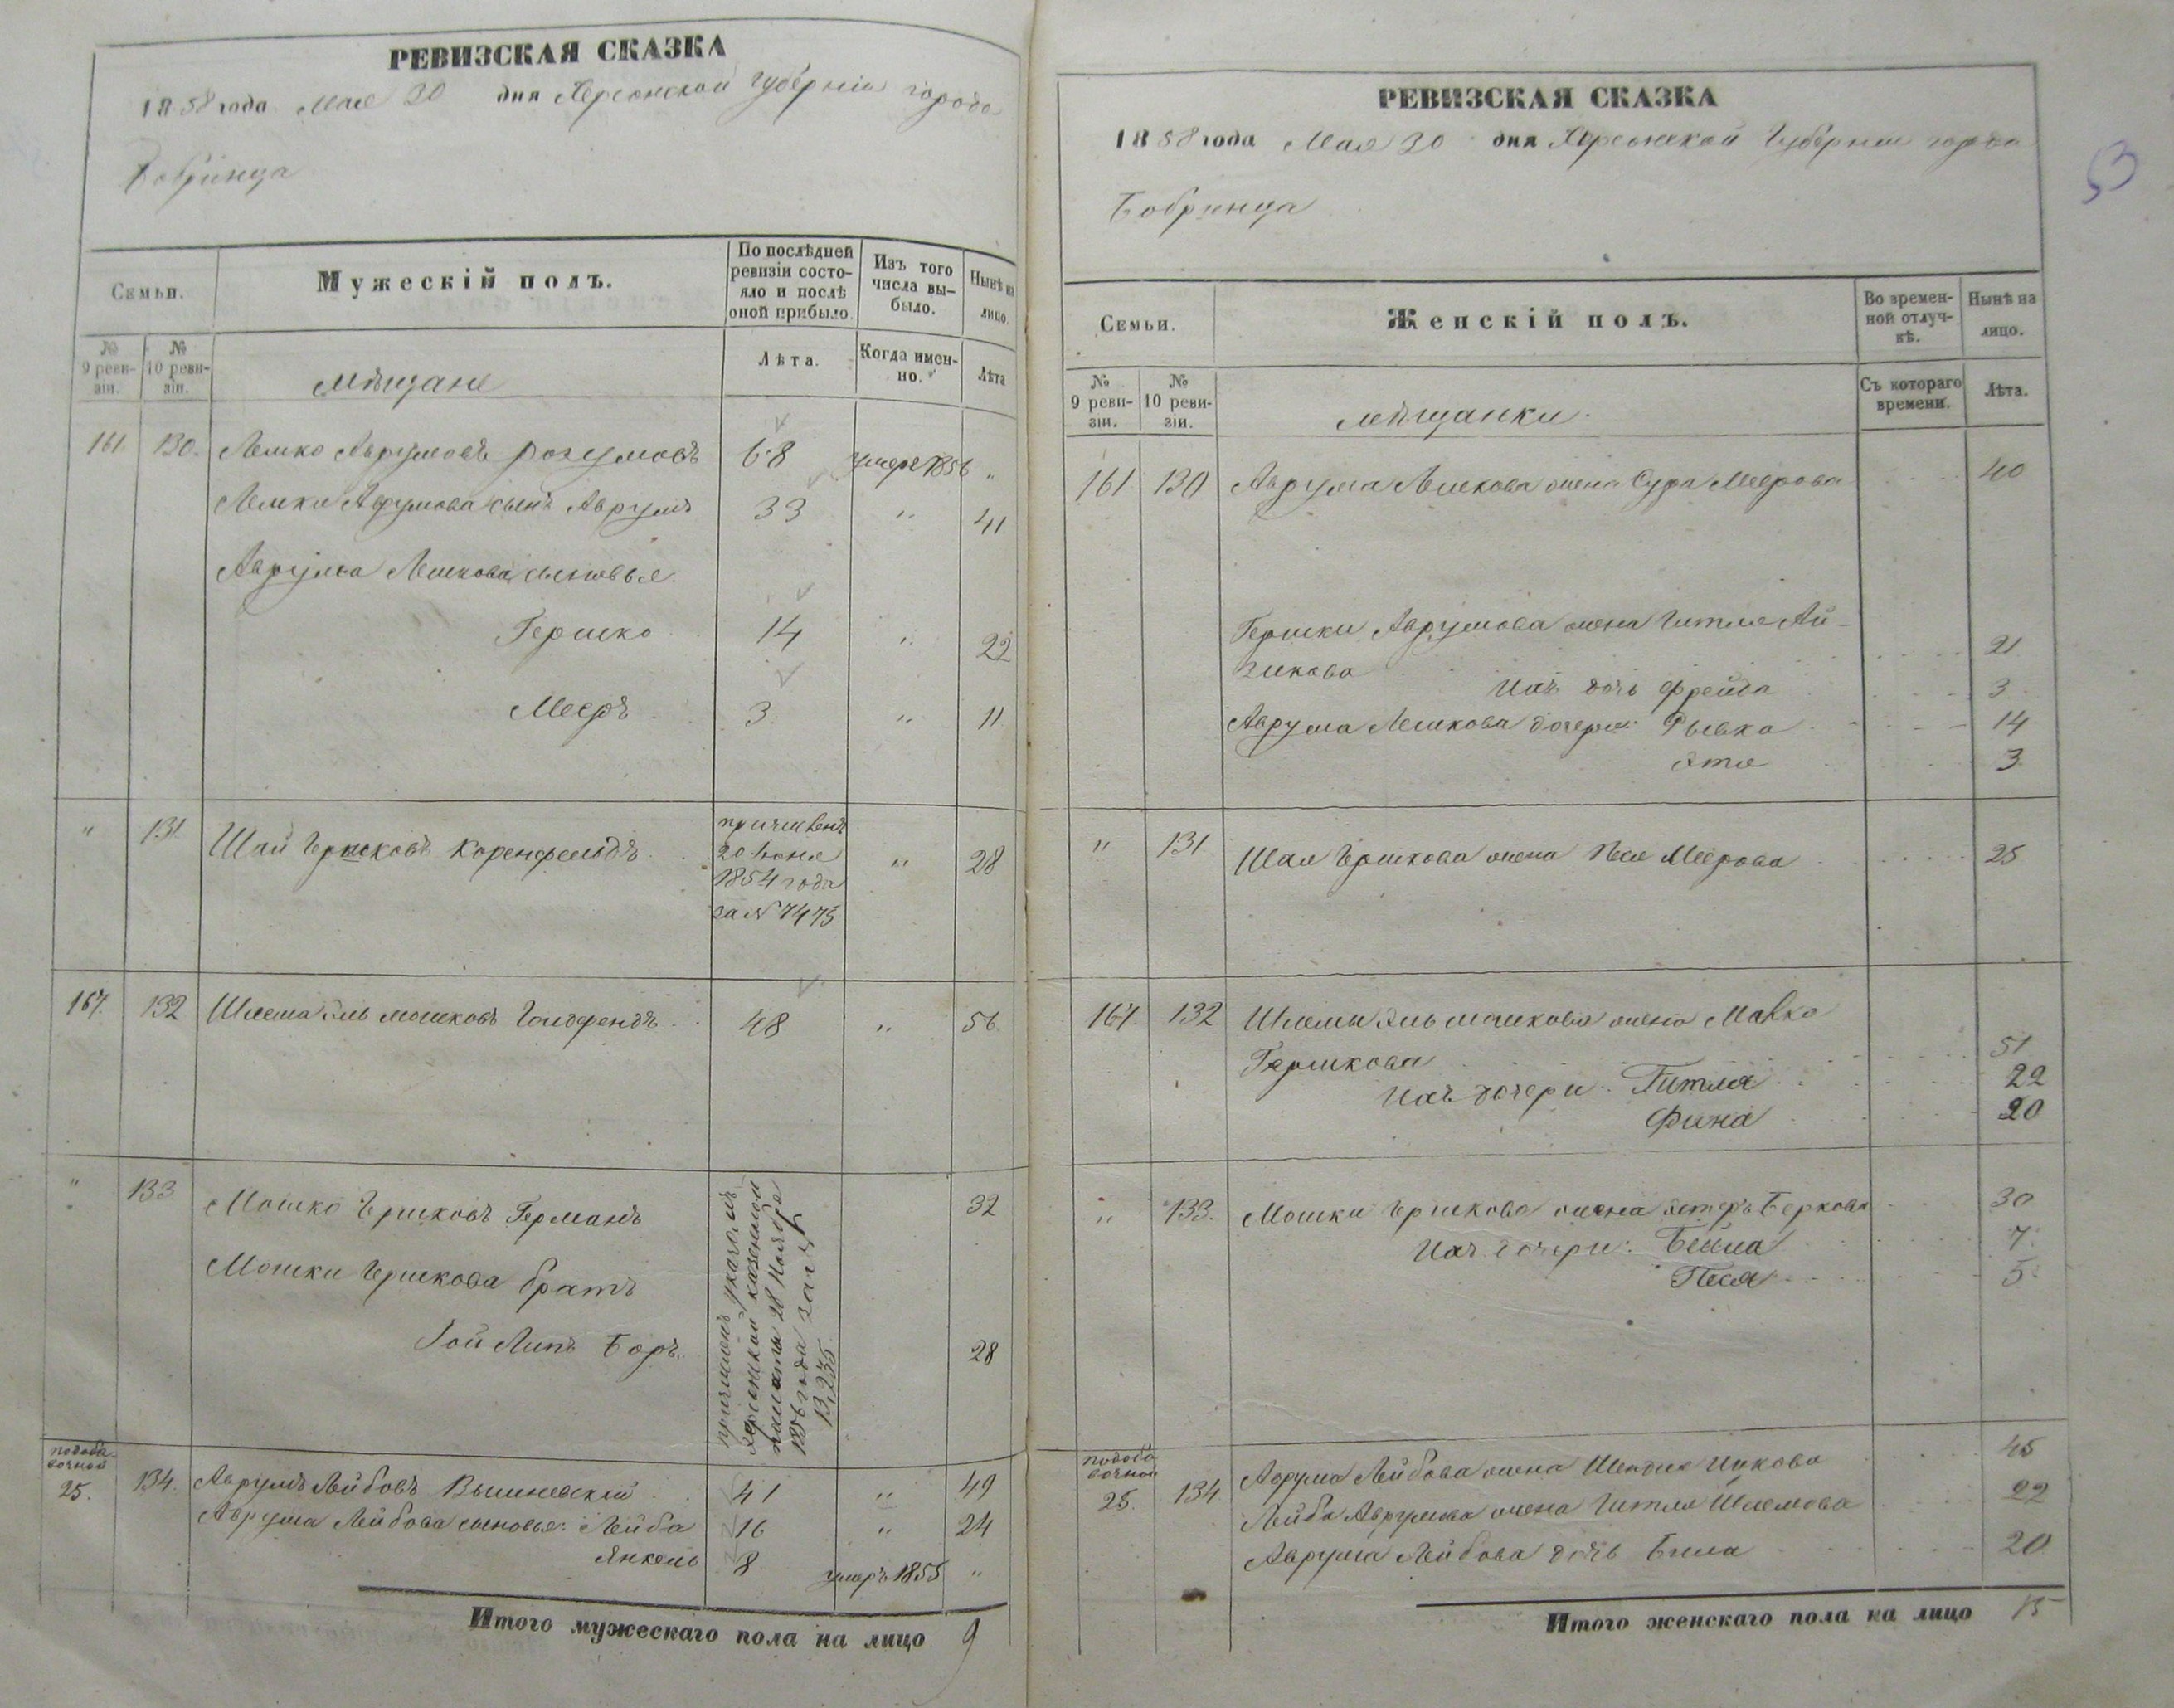 РЕВИЗСКАЯ СКАЗКА
1858 года Мая 30 дня Херсонской Губерніи города
Бобринца
Семьи.
Мужескій полъ.
По послѣдней ревизіи состояло и послѣ оной прибыло.
Изъ того числа выбыло.
Нынѣ на лицо.
№ 9 ревизіи.
№ 10 ревизіи.
мѣщане
Лѣта.
Когда именно.
Лѣта
161 130. Лемко Аврумовъ Розумовъ 68 умеръ 1856 "
Лемки Аврумова сынъ Аврумъ 33 " 41
Аврума Лемкова сыновья
Гершко 14 " 22
Мееръ 3 " 11
" 131. Шай Гершковъ Коренфельдъ причисленъ 20 Іюня 1854 года за № 7475 " 28
167. 132 Шлема Эль Мошковъ 48 " 56
" 133 Мошко Гершковъ Германъ 32
Мошки Гершкова братъ
Боръ 28
причислены указомъ
Херсонской казенной
палаты 28 Ноября
1856 года за №
13,235.
подоба-
вочной
25. 134. Аврумъ Лейбовъ Вышневскій 41 " 49
Аврума Лейбова сыновья: Лейба 16 " 24
Янкель 8 умеръ 1855 "
Итого мужескаго пола на лицо 9
РЕВИЗСКАЯ СКАЗКА
1858 года Мая 30 дня Херсонской Губерніи города
Бобринца
53
Семьи.
Женскій полъ.
Во временной отлучкѣ.
Нынѣ на лицо.
№ 9 ревизіи.
№ 10 ревизіи.
мѣщанки.
Съ котораго времени.
Лѣта.
161 130 Аврума Лемкова жена Сура Меерова 40
Гершки Аврумова жена Гитля Ай-
зикова 21
Ихъ дочь Фрейда 3
Аврума Лемкова дочери: Рывка 14
Этя 3
" 131 Шая Гершкова жена Песя Меерова 25
167. 132 Шлемы Эль Мошкова жена Малка
Гершкова 51
Ихъ дочери: Гитля 22
Фина 20
" 133. Мошки Гершкова жена Эстеръ Беркова 30
Ихъ дочери: Бейла 7
Песя 5
подоба
вочной
25. 134 Аврума Лейбова жена Шендля Ицкова 45
Лейба Аврумова жена Гитля Шлемова 22
Аврума Лейбова дочь Бейла 20
Итого женскаго пола на лицо 15